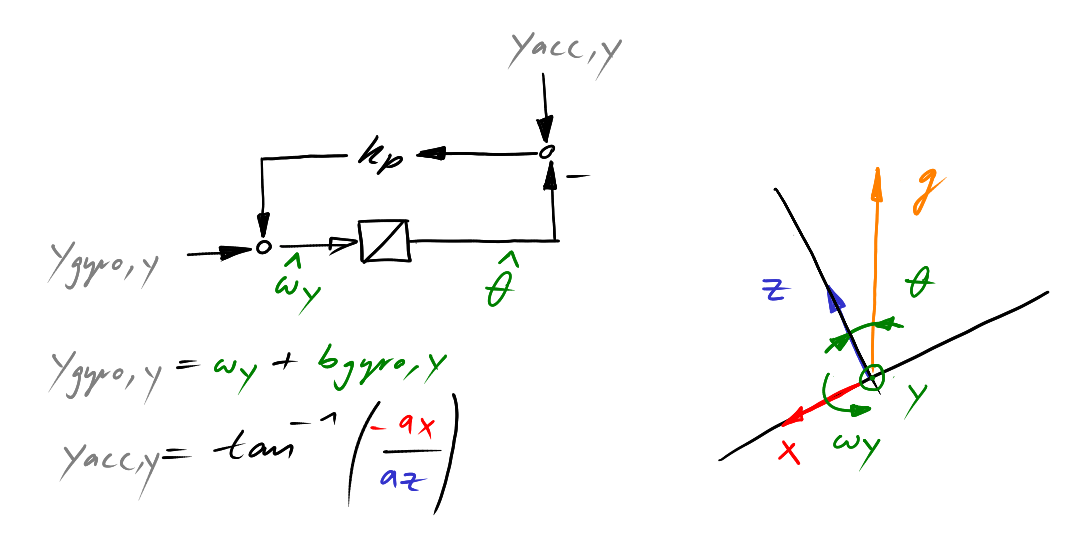 yacc,y
kp
-
ygyro,y
ω̂y
θ̂
ygyro,y = ωy + bgyro,y
yacc,y = tan⁻¹ (-ax/az)
g
z
θ
y
x
ωy